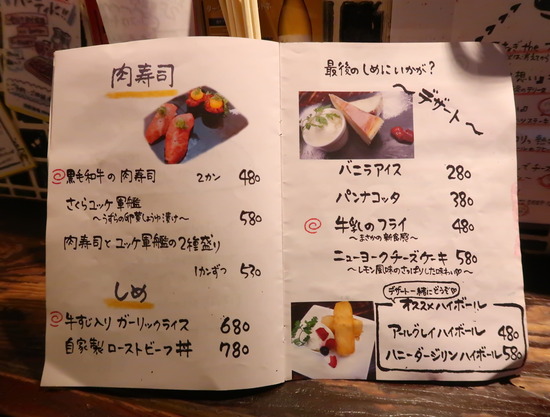 肉寿司
黒毛和牛の肉寿司 2カン 480
さくらユッケ軍艦 580
～うずらの卵黄しょうゆ漬け～
肉寿司とユッケ軍艦の2種盛り
1カンずつ 530
しめ
牛すじ入りガーリックライス 680
自家製ローストビーフ丼 780
最後のしめにいかが?
～デザート～
バニラアイス 280
パンナコッタ 380
牛乳のフライ 480
～まさかの新食感～
ニューヨークチーズケーキ 580
～レモン風味のさっぱりした味わい～
デザートと一緒にどうぞ
オススメハイボール
アールグレイハイボール 480
ハニーダージリンハイボール 580